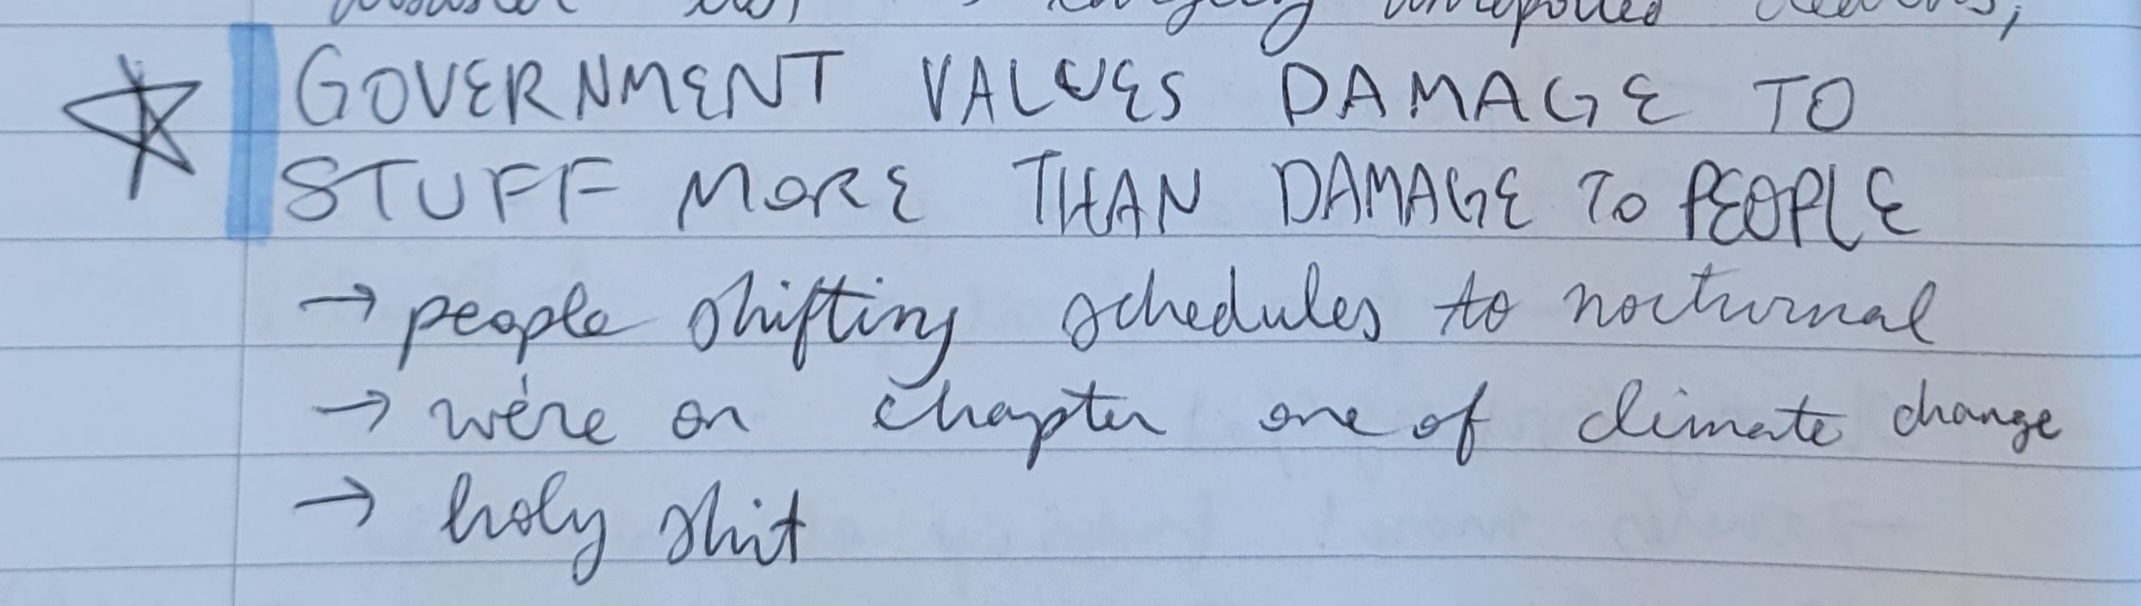 unreported
GOVERNMENT VALUES DAMAGE TO
STUFF MORE THAN DAMAGE TO PEOPLE
→ people shifting schedules to nocturnal
→ we're on chapter one of climate change
→ holy shit